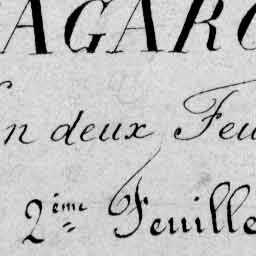 AGARO
en deux Feu
2ème Feuille